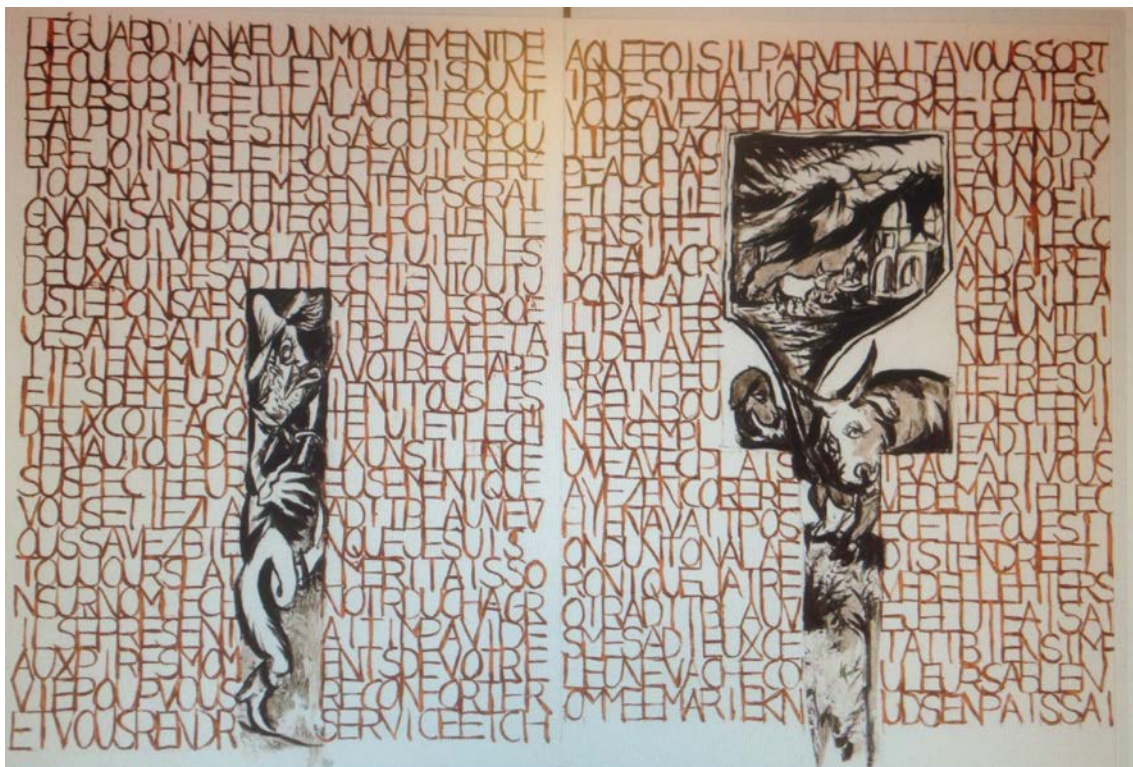 LEGUARDIANAEUUNMOUVEMENTDE
RECULCOMMESILETAITPRISDUNE
PEURSUBITEETILALACHELECOUT
EAUPUISILSESTMISACOURIRPOU
RREJOINDRELETROUPEAUILSERE
TOURNAITDETEMPSENTEMPSCRAI
GNANTSANSDOUTEQUELECHIENLE
POURSUIVEDESLACHESLUIETLES
DEUXAUTRESADITLECHIENTOUTJ
USTEBONSAEM MENERLESBOE
UFSALABATTO IRBLAUVEETA
ITBIENEMUDA AVOIRECHAPP
EILSDEMEURA IENTTOUSLES
DEUXCOTEACO TELUIETLECH
IENAUTOURD EUXUNSILENCE
SUSPECTLEUR
VOUSETIEZLA ADITBLAUVEV
OUSSAVEZBIE NQUEJESUIS
TOUJOURSLAI MERITAITSO
NSURNOMLECH NOIRDUCHAGR
ILSEPRESENT AITIMPAVIDE
AUXPIRESMOM ENTSDEVOTRE
VIEPOURVOUS RECONFORTER
ETVOUSRENDR SERVICEETCH
AQUEFOISILPARVENAITAVOUSSORT
IRDESITUATIONSTRESDELICATES
VOUSAVEZREMARQUECOMMEILLUIEA
ITPEURAC EGRANDTY
PEAUCHAS EAUNOIR
ETLECHIE NDUNOEIL
PENSIFET XADITLECO
UTEAUACR ANDARRET
DONTLALA MEBRILLA
ITPARTER REAUMILI
EUDELAVE NUEONPOU
RRAITPEU TETRESUI
VREUNBOU TDECHEMI
NENSEMBL EADITBLA
UVEAVECPLAIS
AVEZENCORERE VEDEMARIELEC
HIENAVAITPOS ECETTEQUESTI
OISTENDREETI
RONIQUEQUATRE